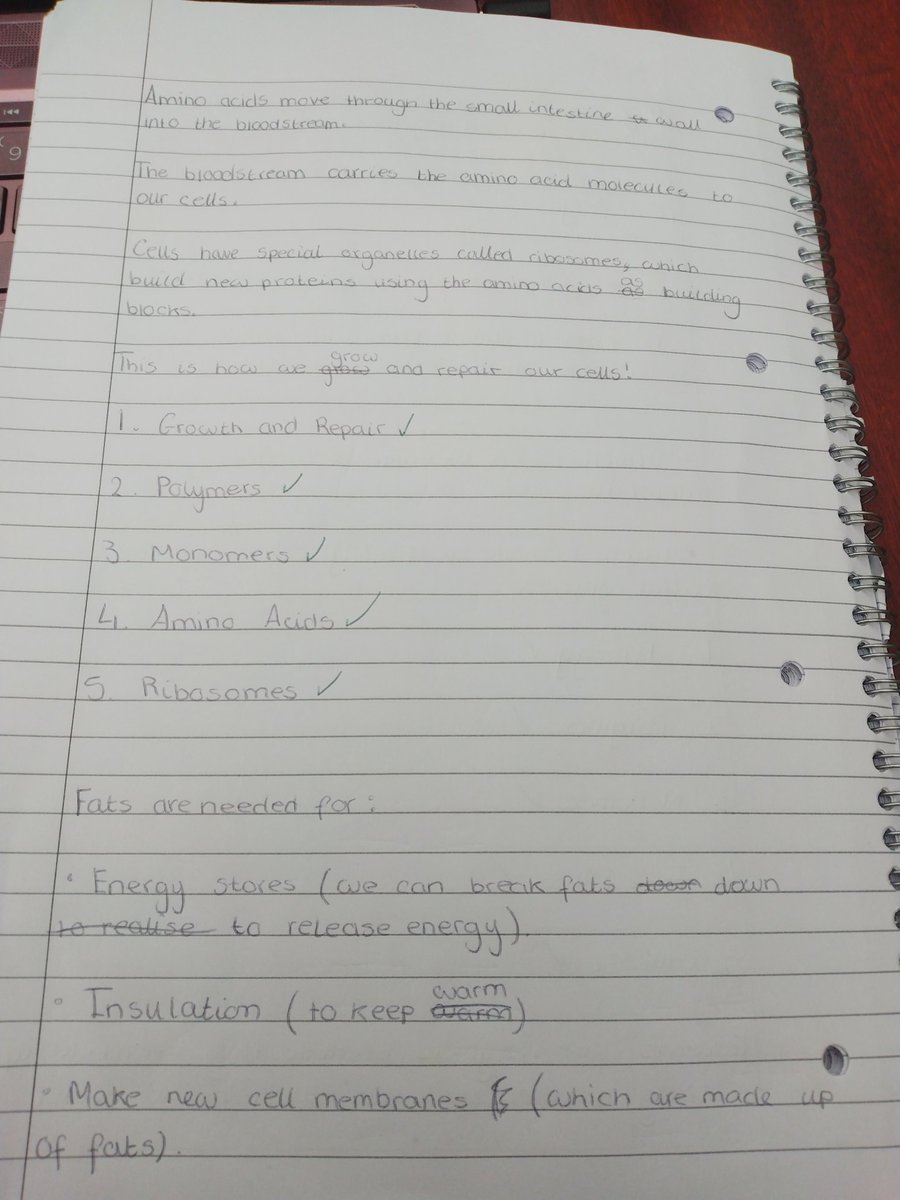 Amino acids move through the small intestine wall
into the bloodstream.
The bloodstream carries the amino acid molecules to
our cells.
Cells have special organelles called ribosomes, which
build new proteins using the amino acids as building
blocks.
This is how we grow and repair our cells!
1. Growth and Repair ✓
2. Polymers ✓
3. Monomers ✓
4. Amino Acids ✓
5. Ribosomes ✓
Fats are needed for:
• Energy stores (we can break fats down
to realise to release energy).
• Insulation (to keep warm)
• Make new cell membranes (which are made up
of fats).
9